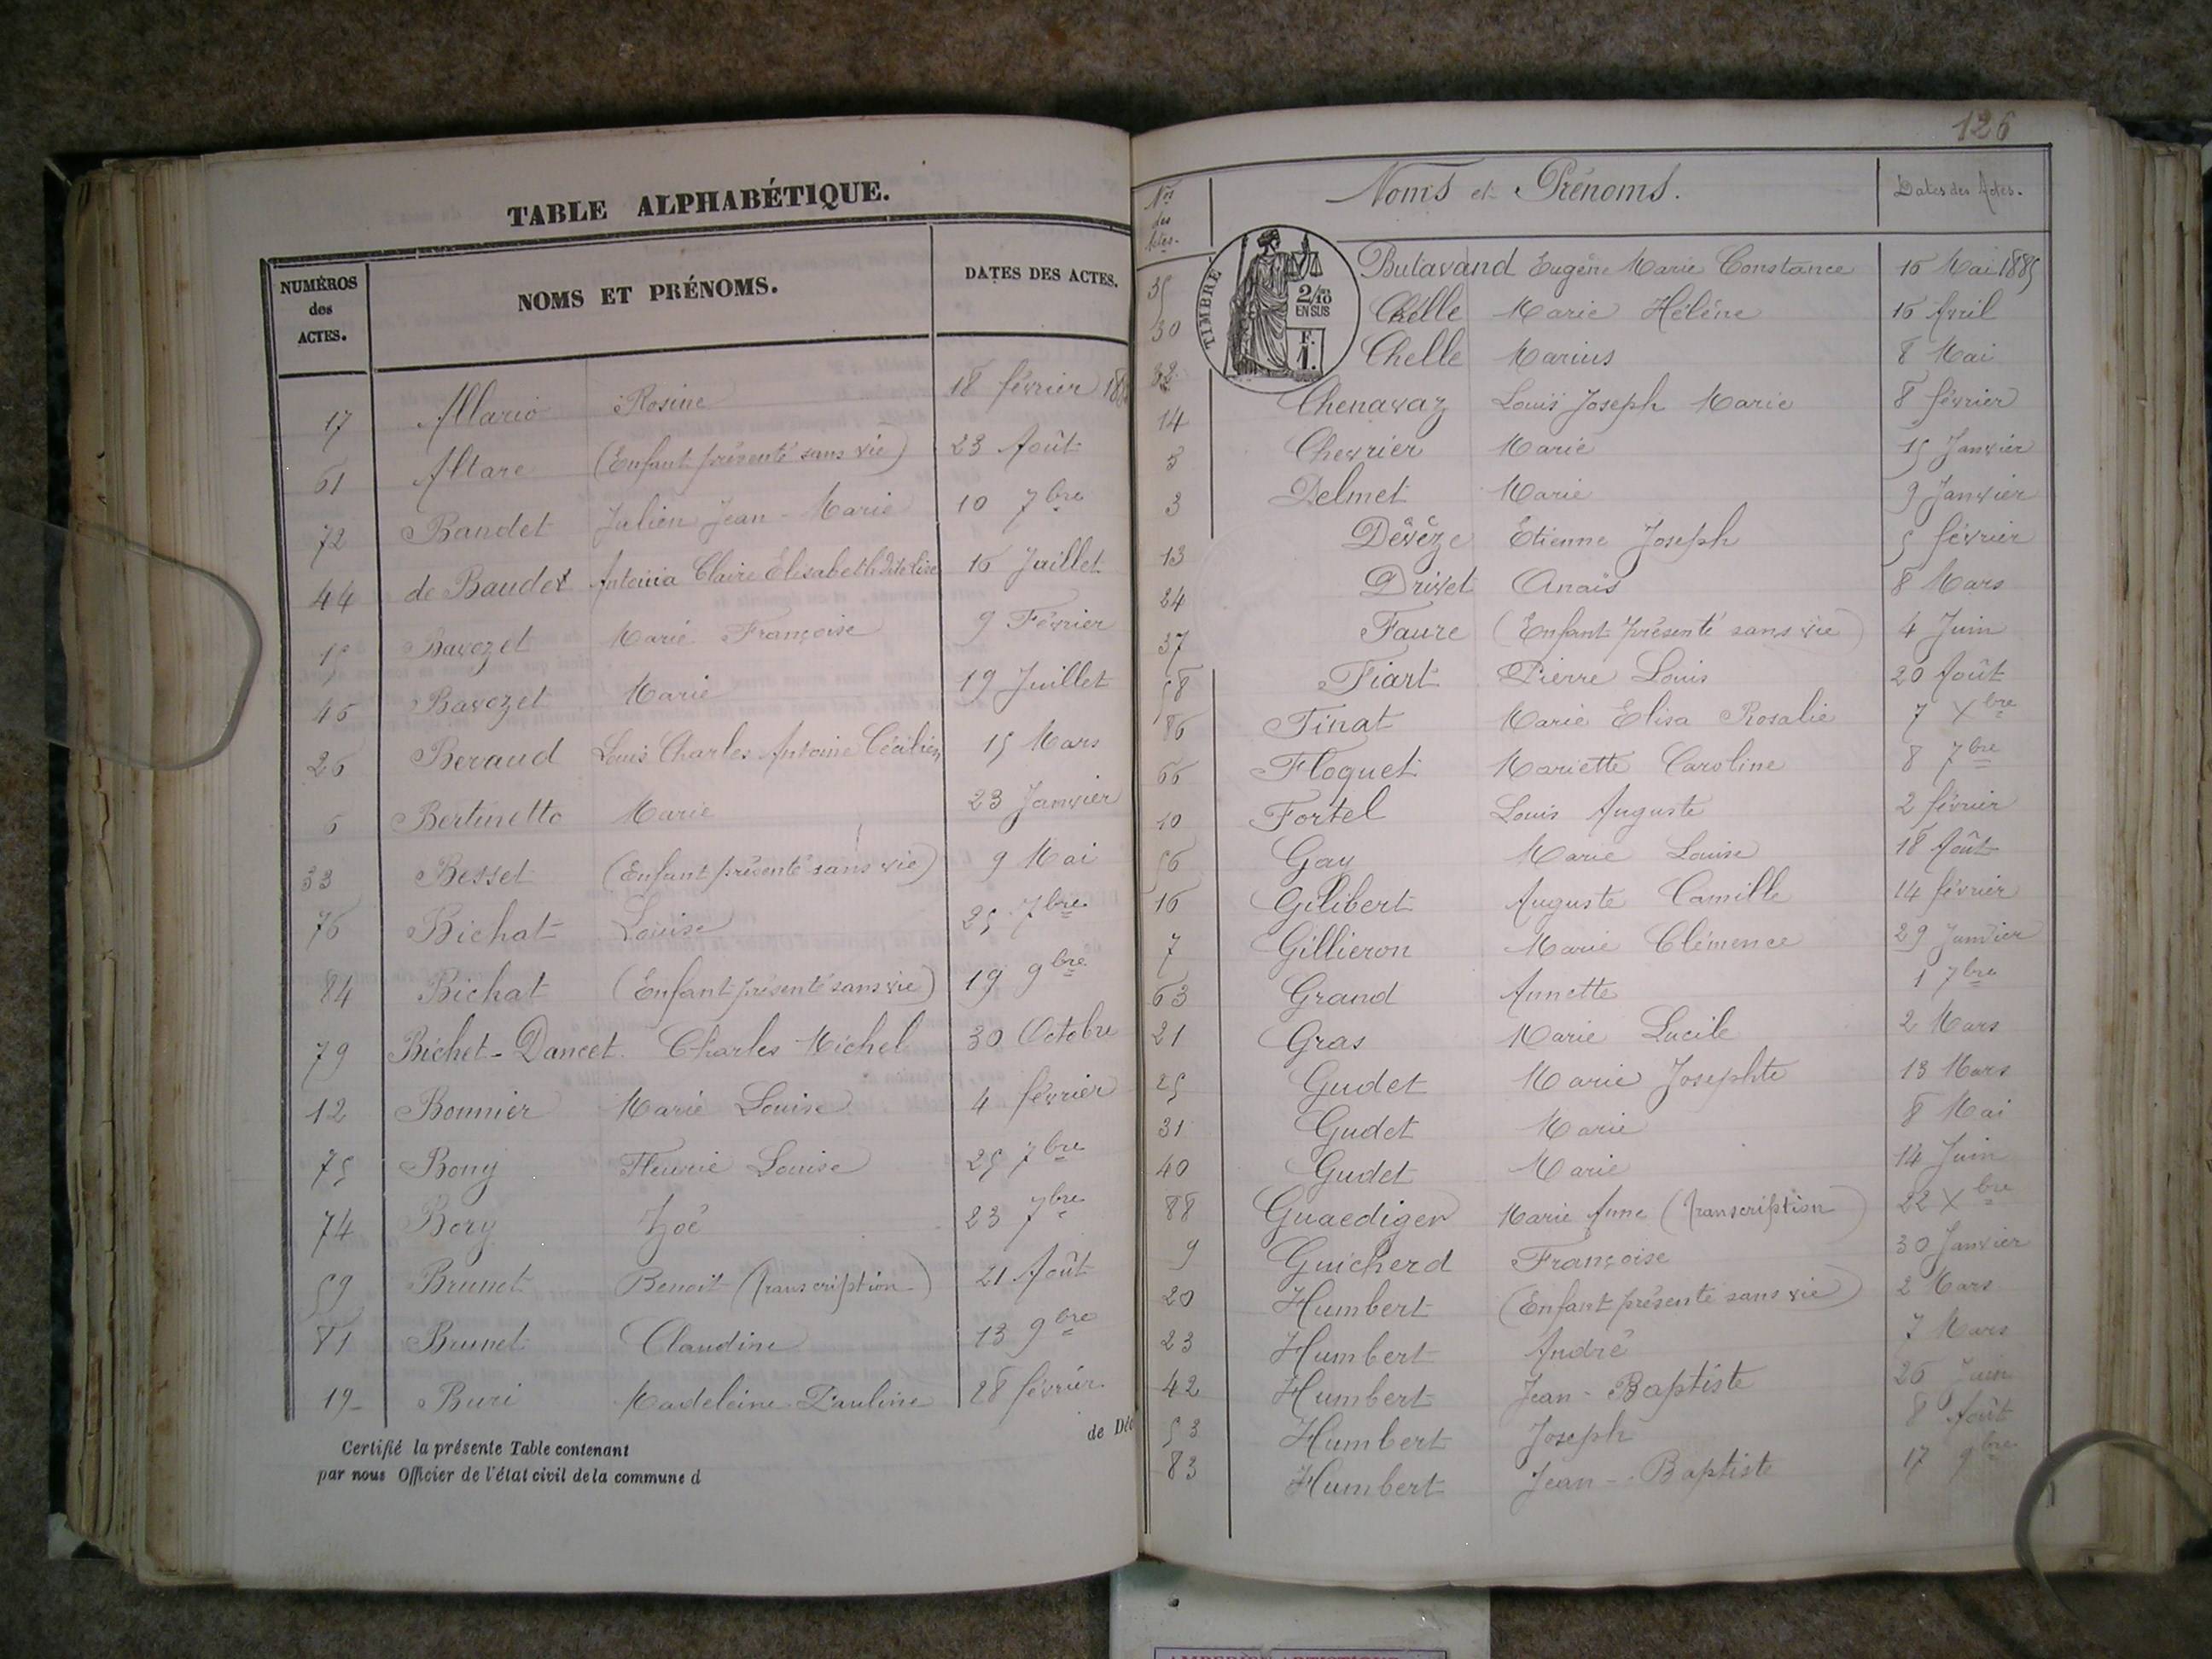 TABLE ALPHABÉTIQUE.
NUMÉROS des ACTES. NOMS ET PRÉNOMS. DATES DES ACTES.
17 Allario Rosine 18 février 188
61 Altare (Enfant présenté sans vie) 23 Août
72 Baudet Julien Jean-Marie 10 7bre
44 de Baudet Antonia Claire Elisabeth dite Lise 16 Juillet
15 Bavozet Marie Françoise 9 Février
46 Bavozet Marie 19 Juillet
26 Beraud Louis Charles Antoine Cécilien 15 Mars
6 Bertinetto Marie 23 Janvier
33 Besset (Enfant présenté sans vie) 9 Mai
76 Bichat Louise 25 7bre
84 Bichat (Enfant présenté sans vie) 19 9bre
79 Bichet-Dancet Charles Michel 30 Octobre
12 Bonnier Marie Louise 4 février
75 Bony Fleurie Louise 25 7bre
74 Bory Zoé 23 7bre
59 Brunet Benoit (transcription) 21 Août
81 Brunet Claudine 13 9bre
19 Buri Madeleine Pauline 28 février
de Déc
Certifié la présente Table contenant
par nous Officier de l'état civil de la commune d
126
Nos des Actes. Noms et Prénoms. Dates des Actes.
TIMBRE
2/10
EN SUS
F.
1.
35 Butavand Eugène Marie Constance 16 Mai 1885
30 Chelle Marie Hélène 16 Avril
32 Chelle Marius 8 Mai
14 Chenavaz Louis Joseph Marie 8 février
5 Chevrier Marie 15 Janvier
3 Delmet Marie 9 Janvier
13 Dévèze Etienne Joseph 5 février
24 Drivet Anaïs 8 Mars
37 Faure (Enfant présenté sans vie) 4 Juin
58 Fiart Pierre Louis 20 Août
86 Finat Marie Elisa Rosalie 7 Xbre
66 Floquet Mariette Caroline 8 7bre
10 Fortel Louis Auguste 2 février
56 Gay Marie Louise 18 Août
16 Gilibert Auguste Camille 14 février
7 Gillieron Marie Clémence 29 Janvier
63 Grand Annette 1 7bre
21 Gras Marie Lucile 2 Mars
25 Gudet Marie Josephte 13 Mars
31 Gudet Marie 8 Mai
40 Gudet Marie 14 Juin
88 Guaediger Marie Anne (transcription) 22 Xbre
9 Guicherd Françoise 30 Janvier
20 Humbert (Enfant présenté sans vie) 2 Mars
23 Humbert André 7 Mars
42 Humbert Jean-Baptiste 26 Juin
53 Humbert Joseph 8 Août
83 Humbert Jean-Baptiste 17 9bre